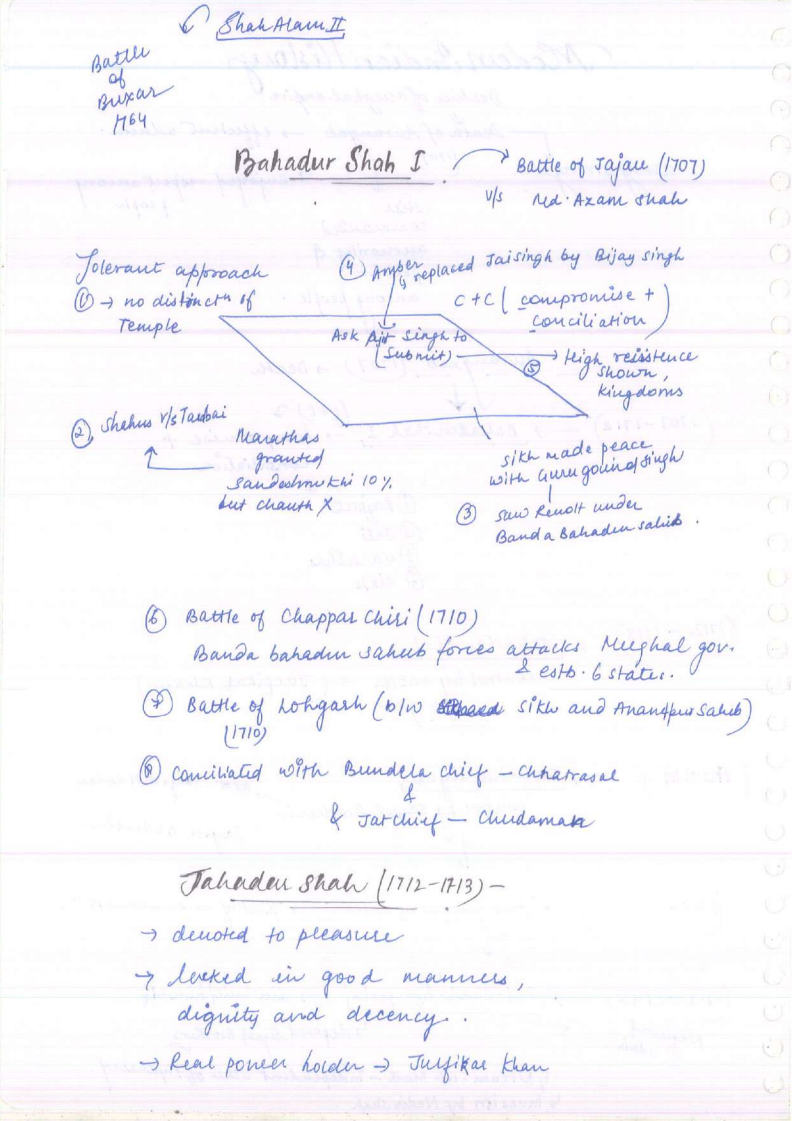 Shah Alam II
Battle
of
Buxar
1764
Bahadur Shah I
Battle of Jajau (1707)
v/s Md. Azam Shah
Tolerant approach
① → no distinctn of
Temple
④ Amber
↳ replaced Jaisingh by Bijay singh
C + C ( compromise +
conciliation )
Ask Ajit Singh to
(Submit)
⑤ → High resistence
shown,
kingdoms
②, Shahus v/s Tarabai
Marathas
granted
Sardeshmukhi 10%
but chauth X
sikh made peace
with Guru gobind Singh
③ saw Revolt under
Banda Bahadur sahib.
⑥ Battle of Chappar Chiri (1710)
Banda bahadur sahib forces attacks Mughal gov.
& estb. 6 states.
⑦ Battle of Lohgarh (b/w sikh and Anandpur Saheb)
(1710)
⑧ Conciliated with Bundela chief - Chhatrasal
&
& Jat chief - Chudaman
Jahadar Shah (1712-1713) -
→ devoted to pleasure
→ lacked in good manners,
dignity and decency..
→ Real power holder → Julfikar Khan